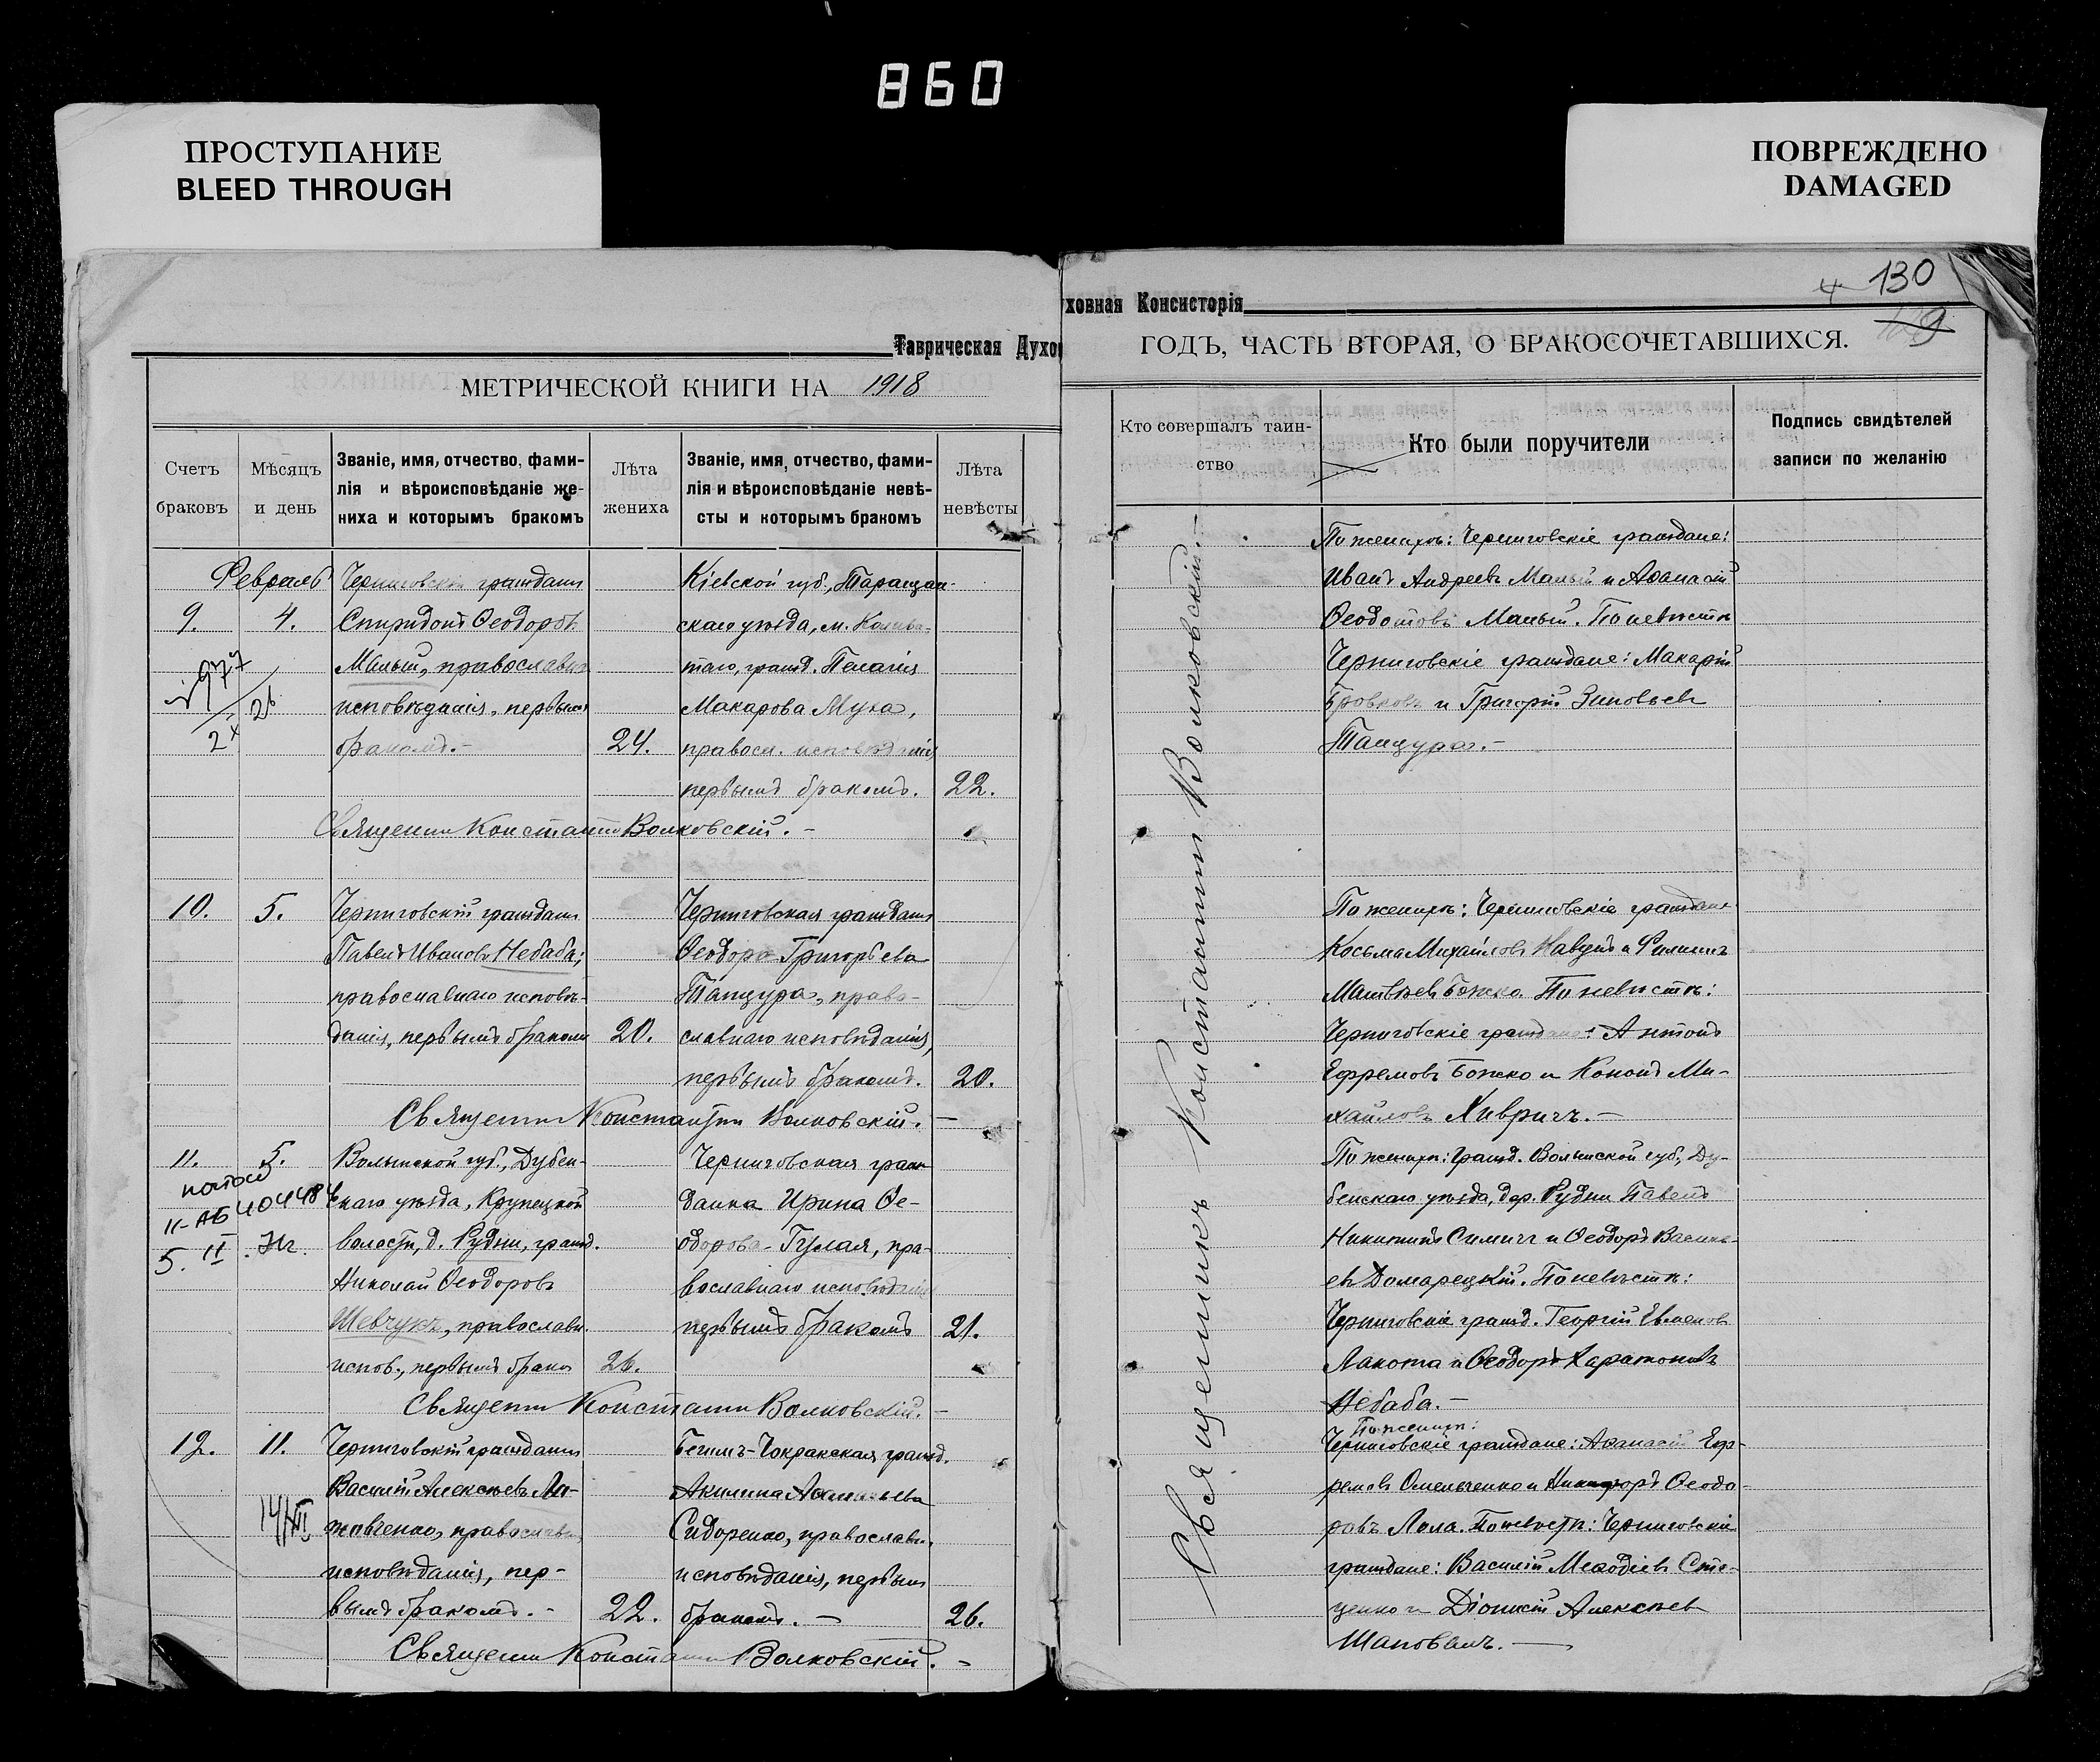 860
ПРОСТУПАНИЕ
BLEED THROUGH
ПОВРЕЖДЕНО
DAMAGED
Таврическая Духов
МЕТРИЧЕСКОЙ КНИГИ НА 1918
Счетъ браковъ
Мѣсяцъ и день
Званіе, имя, отчество, фами-
лія и вѣроисповѣданіе же-
ниха и которымъ бракомъ
Лѣта жениха
Званіе, имя, отчество, фами-
лія и вѣроисповѣданіе невѣ-
сты и которымъ бракомъ
Лѣта невѣсты
Февраль
9.
4.
Черниговскій гражданин
Спиридонъ Ѳеодоровъ
Малый, православна
исповѣданія, первымъ
бракомъ.-
24.
Кіевской губ., Таращан-
скаго уѣзда, м.
таго, гражд. Пелагія
Макарова Муха,
правосл. исповѣданія,
первымъ бракомъ.
22.
Священник Константин Волковскій.-
10.
5.
Черниговскій гражданин
Павелъ Ивановъ Небаба,
православнаго исповѣ-
данія, первымъ бракомъ
20.
Черниговская граждан
Ѳеодора Григорьева
Танцура, право-
славнаго исповѣданія,
первымъ бракомъ.
20.
Священник Константин Волковскій.-
11.
5.
11-АБ 404484
5. II
Волынской губ., Дубен-
скаго уѣзда, Крупецкой
волости, д. Рудни, гражд.
Николай Ѳеодоровъ
Шевчукъ, православн.
испов., первымъ брако
26.
Черниговская граж
данка Ирина Ѳе-
одорова Гулая, пра-
вославнаго исповѣданія
первымъ бракомъ
21.
Священник Константин Волковскій.-
12.
11.
14/III
Черниговскій гражданин
Василій Алексѣевъ
православн.
исповѣданія, пер-
вымъ бракомъ.-
22.
Бешъ-Чокракская гражд.
Акилина
Сидоренко, православн.
исповѣданія, первым
бракомъ.-
26.
Священник Константин Волковскій.-
ховная Консисторія
4 130
129
ГОДЪ, ЧАСТЬ ВТОРАЯ, О БРАКОСОЧЕТАВШИХСЯ.
Кто совершалъ таин-
ство
Кто были поручители
Подпись свидѣтелей
записи по желанію
Священникъ Константин Волковскій.-
По женихѣ: Черниговскіе граждане:
Иванъ Андреевъ Малый и Аѳанасій
Ѳеодотовъ Малый. По невѣстѣ
Черниговскіе граждане: Макарій
Бровковъ и Григорій Зиновьевъ
Танцура.-
По женихѣ: Черниговскіе граждане
Косьма Михайловъ Навукъ и Филиппъ
Матвѣевъ Божко. По невѣстѣ:
Черниговскіе граждане: Антонъ
Ефремовъ Божко и Кононъ Ми-
хайловъ Хивричъ.-
По женихѣ: Гражд. Волынской губ., Ду-
бенскаго уѣзда, дер. Рудни Павелъ
Никитинъ Симичъ и Ѳеодоръ Василь-
евъ Домарецкій. По невѣстѣ:
Черниговскіе гражд. Георгій Евменовъ
Лакота и Ѳеодоръ Харитоновъ
Небаба.-
По женихѣ:
Черниговскіе граждане: Аѳанасій Еф-
ремовъ Омельченко и Никифоръ Ѳеодо-
ровъ Лола. По невѣстѣ: Черниговскіе
граждане: Василій Меѳодіевъ Сте-
ценко и Діонисій Алексѣев
Шаповалъ.-